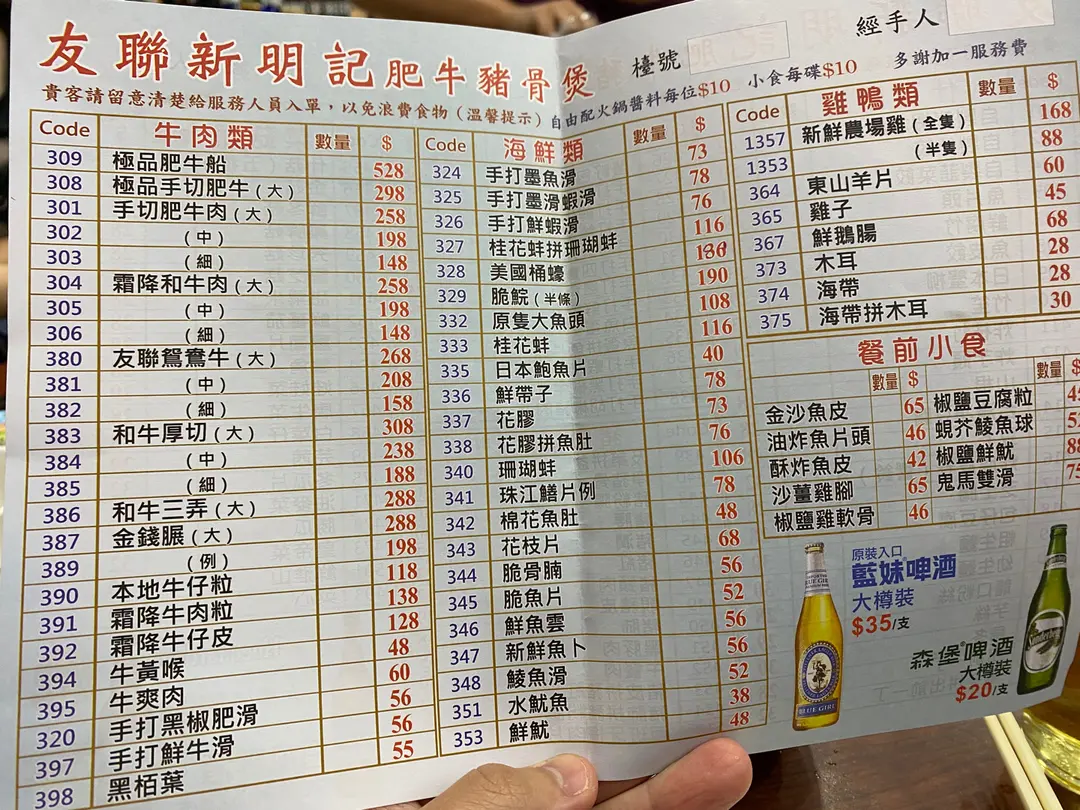 友聯新明記肥牛豬骨煲
檯號
經手人
貴客請留意清楚給服務人員入單，以免浪費食物（溫馨提示）自由配火鍋醬料每位$10 小食每碟$10 多謝加一服務費
Code 牛肉類 數量 $
309 極品肥牛船 528
308 極品手切肥牛(大) 298
301 手切肥牛肉(大) 258
302 (中) 198
303 (細) 148
304 霜降和牛肉(大) 258
305 (中) 198
306 (細) 148
380 友聯鴛鴦牛(大) 268
381 (中) 208
382 (細) 158
383 和牛厚切(大) 308
384 (中) 238
385 (細) 188
386 和牛三弄(大) 288
387 金錢𦟌(大) 288
389 (例) 198
390 本地牛仔粒 118
391 霜降牛肉粒 138
392 霜降牛仔皮 128
394 牛黃喉 48
395 牛爽肉 60
320 手打黑椒肥滑 56
397 手打鮮牛滑 56
398 黑栢葉 55
Code 海鮮類 數量 $
324 手打墨魚滑 73
325 手打墨滑蝦滑 78
326 手打鮮蝦滑 76
327 桂花蚌拼珊瑚蚌 116
328 美國桶蠔
329 脆鯇(半條) 190
332 原隻大魚頭 108
333 桂花蚌 116
335 日本鮑魚片 40
336 鮮帶子 78
337 花膠 73
338 花膠拼魚肚 76
340 珊瑚蚌 106
341 珠江鱔片例 78
342 棉花魚肚 48
343 花枝片 68
344 脆骨腩 56
345 脆魚片 52
346 鮮魚雲 56
347 新鮮魚卜 56
348 鯪魚滑 52
351 水魷魚 38
353 鮮魷 48
Code 雞鴨類 數量 $
1357 新鮮農場雞(全隻) 168
1353 (半隻) 88
364 東山羊片 60
365 雞子 45
367 鮮鵝腸 68
373 木耳 28
374 海帶 28
375 海帶拼木耳 30
餐前小食
數量 $ 數量 $
金沙魚皮 65 椒鹽豆腐粒
油炸魚片頭 46 蜆芥鯪魚球
酥炸魚皮 42 椒鹽鮮魷
沙薑雞腳 65 鬼馬雙滑
椒鹽雞軟骨 46
原裝入口
藍妹啤酒
大樽裝
$35/支
BLUE GIRL
森堡®啤酒
大樽裝
$20/支